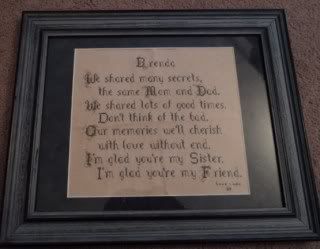 Brenda
We shared many secrets,
the same Mom and Dad.
We shared lots of good times.
Don't think of the bad.
Our memories we'll cherish
with love without end.
I'm glad you're my Sister,
I'm glad you're my Friend.